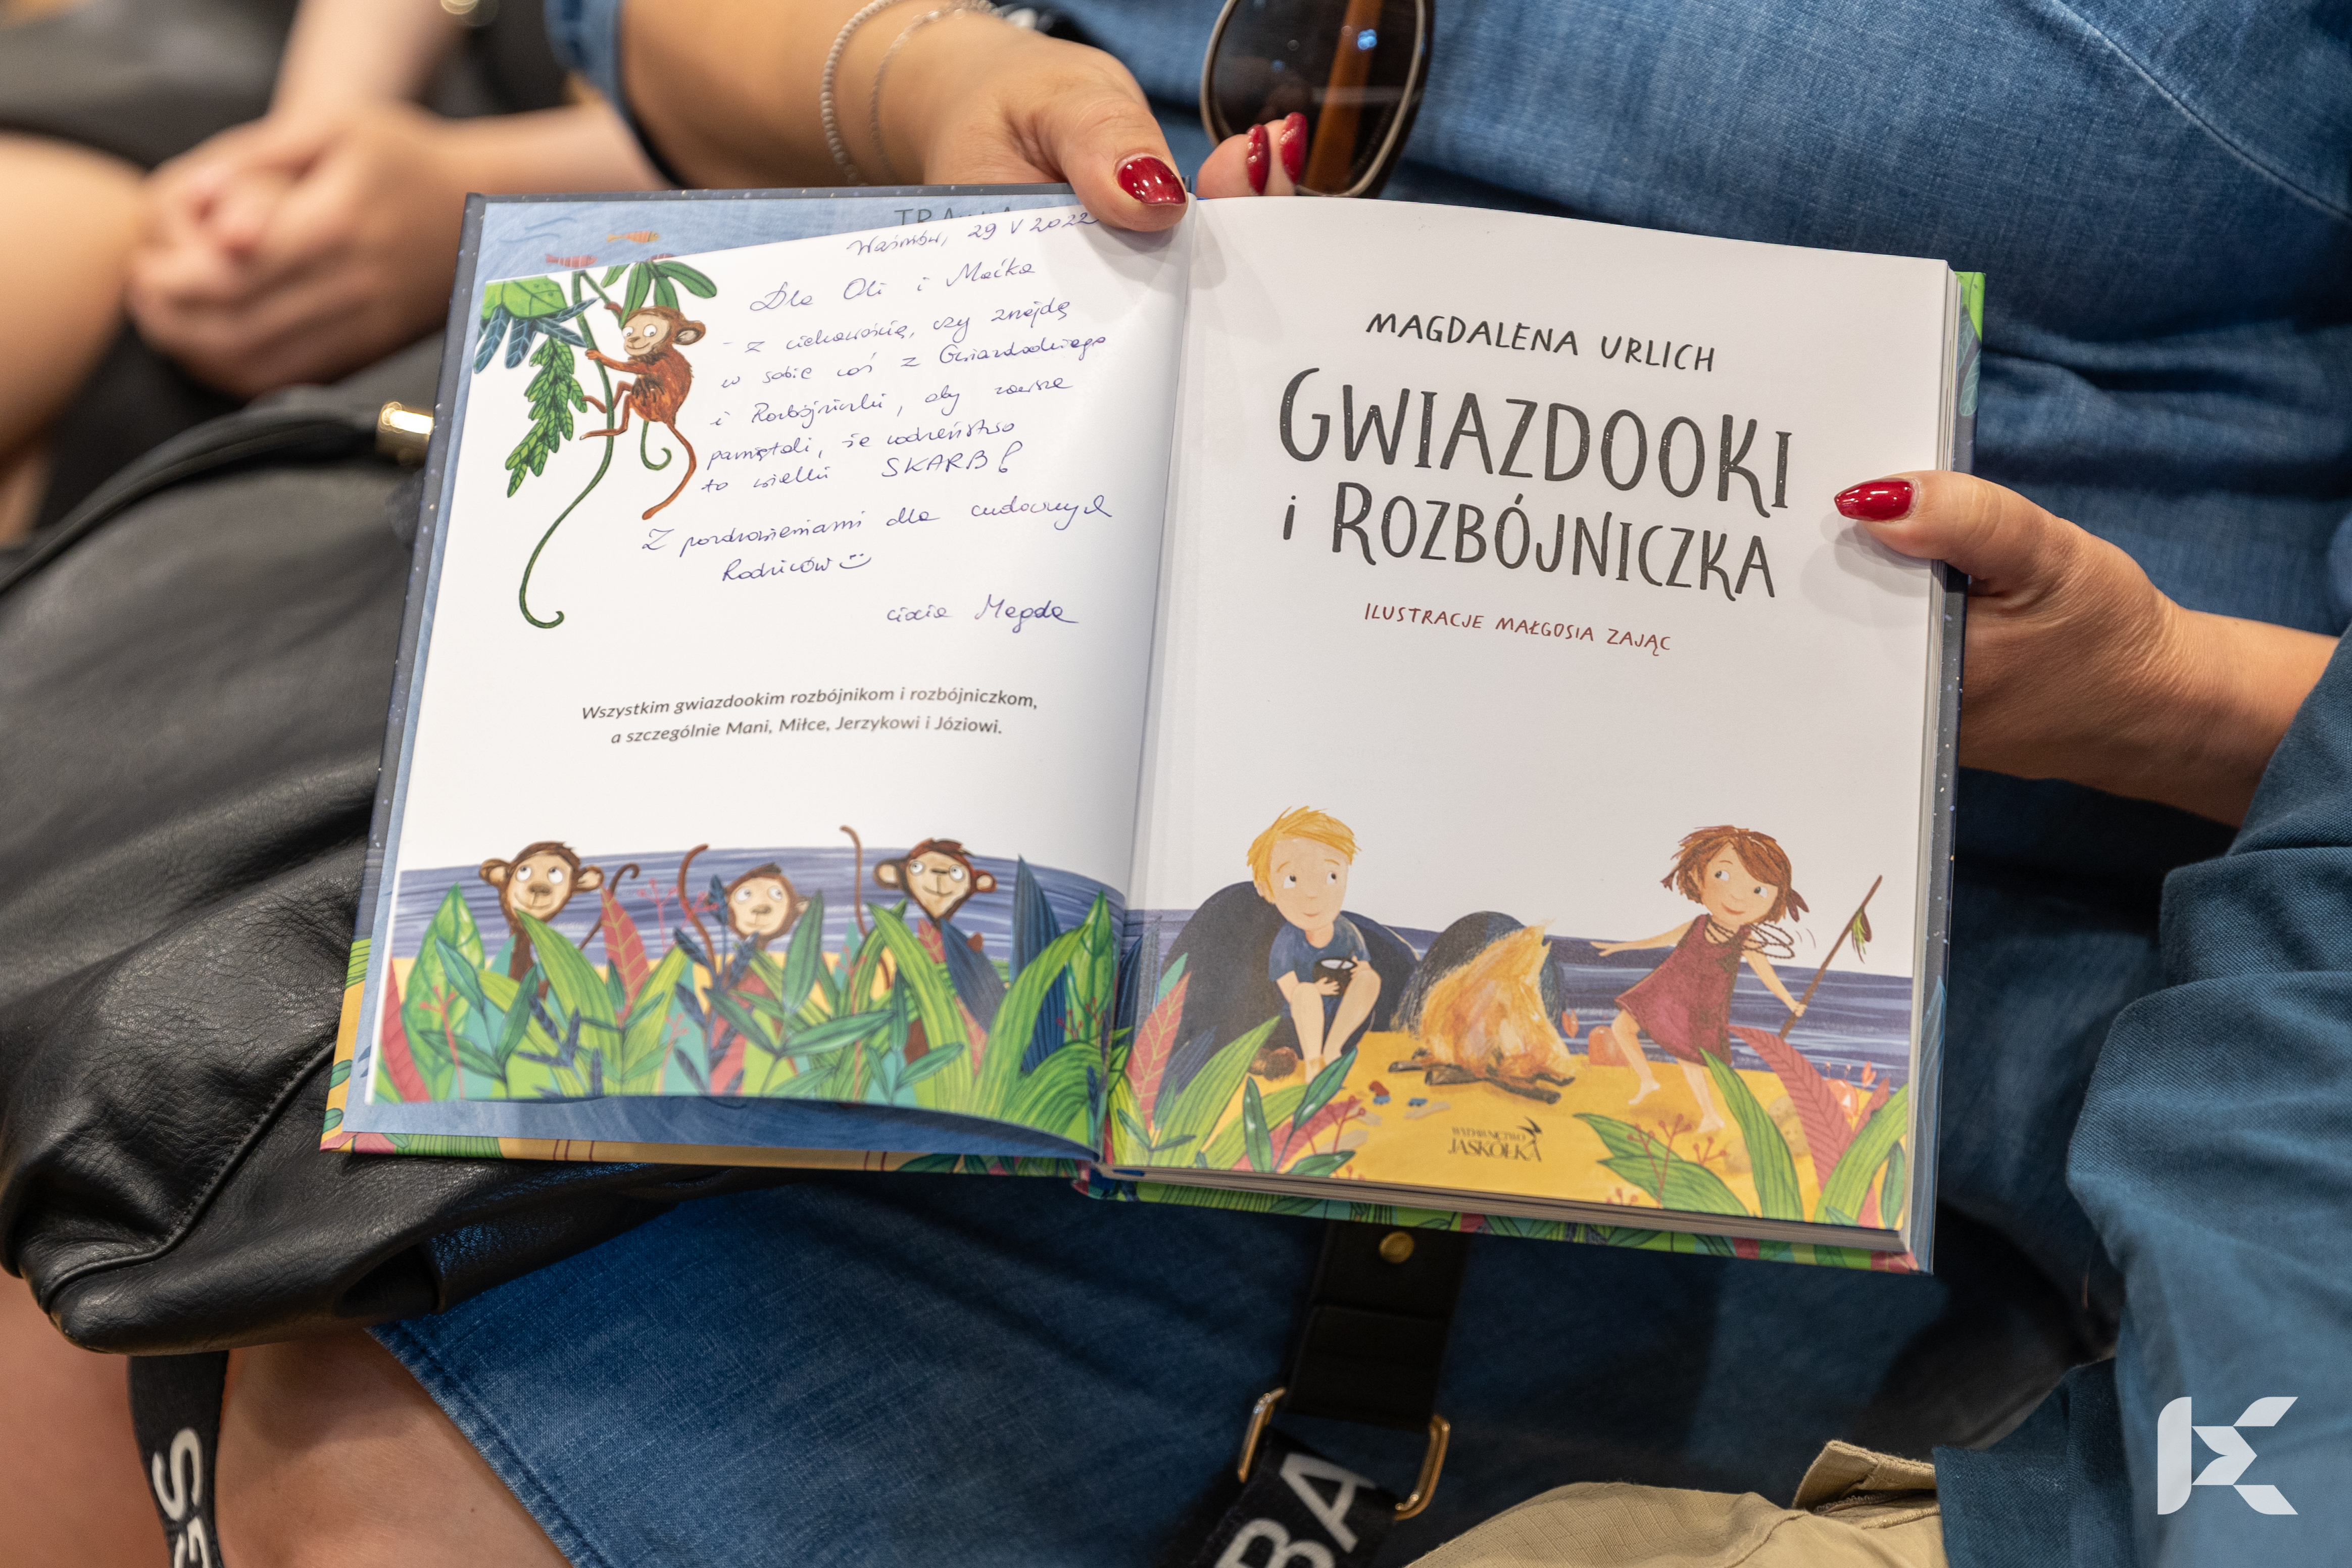 Waśniów, 29 V 2022
Dla Oli i Maćka
- z ciekawością, czy znajdą
w sobie coś z Gwiazdookiego
i Rozbójniczki, aby zawsze
pamiętali, że rodzeństwo
to wielki SKARB!
Z pozdrowieniami dla cudownych
Rodziców
ciocia Magda
Wszystkim gwiazdookim rozbójnikom i rozbójniczkom,
a szczególnie Mani, Miłce, Jerzykowi i Józiowi.
MAGDALENA URLICH
GWIAZDOOKI
i ROZBÓJNICZKA
ILUSTRACJE MAŁGOSIA ZAJĄC
WYDAWNICTWO
JASKÓŁKA
BA